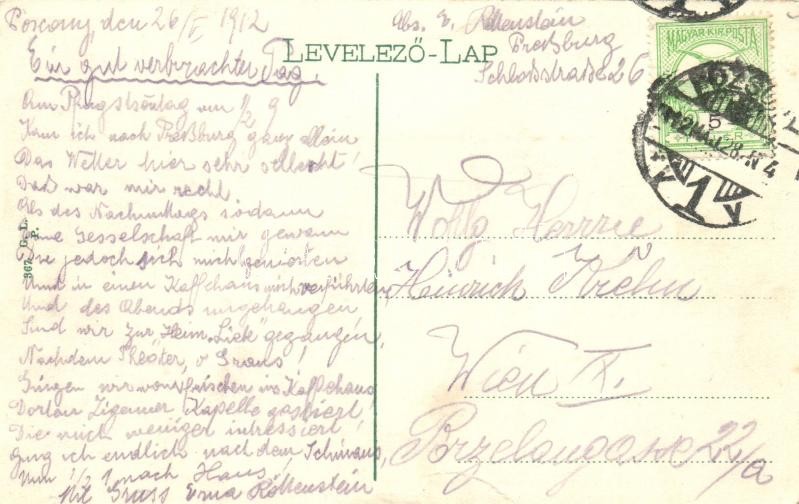 Poszony, den 26/V 1912
Ein gut verbrachter Tag.
Am Pfingstsontag um 1/2 9
Kam ich nach Preßburg ganz allein
Das Wetter hier sehr schlecht!
Das war mir recht
Als des Nachmittags sodann
Eine Gesellschaft mir gewann
Die jedoch sich nicht genierten
Und in einen Kaffehaus mich verführten
Und des Abends
Sind wir zur "Heim Liek" gegangen,
Nachdem Theater, o Graus,
Gingen wir von frischen ins Kaffehaus
Dortan Zigeuner Kapelle gastiert
Die mich weniger intressiert,
Ging ich endlich nach dem Schmaus,
Um 1/2 1 nach Haus,
Mit Gruss Erna Rottenstein
367 G. L. P.
LEVELEZŐ-LAP
Abs. E. Rottenstein
Preßburg
Schloßstraße 26
MAGYAR KIR. POSTA
POZSONY
1
Wohlg Herrn
Heinrich Krehn
Wien IX.
Porzelangasse 22/a